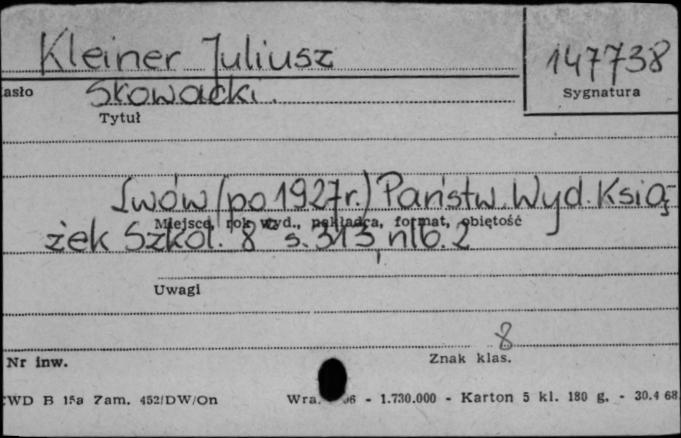 Kleiner Juliusz
147738
asło
Słowacki.
Sygnatura
Tytuł
Lwów (po 1927r.) Państw. Wyd. Ksią
Miejsce, rok wyd., nakładca, format, objętość
żek Szkol. 8° s. 313, nlb. 2
Uwagi
8
Nr inw.
Znak klas.
CWD B 15a Zam. 452/DW/On
Wra. 06 - 1.730.000 - Karton 5 kl. 180 g. - 30.4 68